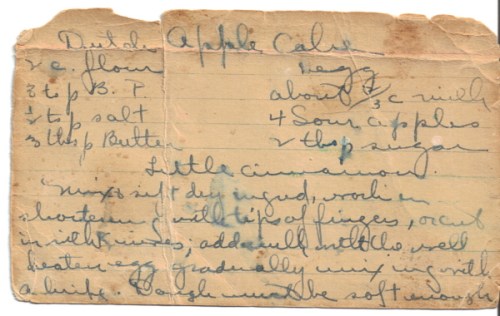 Dutch Apple Cake
2 c. flour 1 egg
3 tsp B. P about 2/3 c milk
1/2 tsp salt 4 Sour apples
3 tbsp Butter 2 tbsp sugar
Little cinnamon
Mix & sift dry ingred, work in
shortening with tips of fingers, or cut
in with knives; add milk with the well
beaten egg gradually mixing with
a knife. Dough must be soft enough